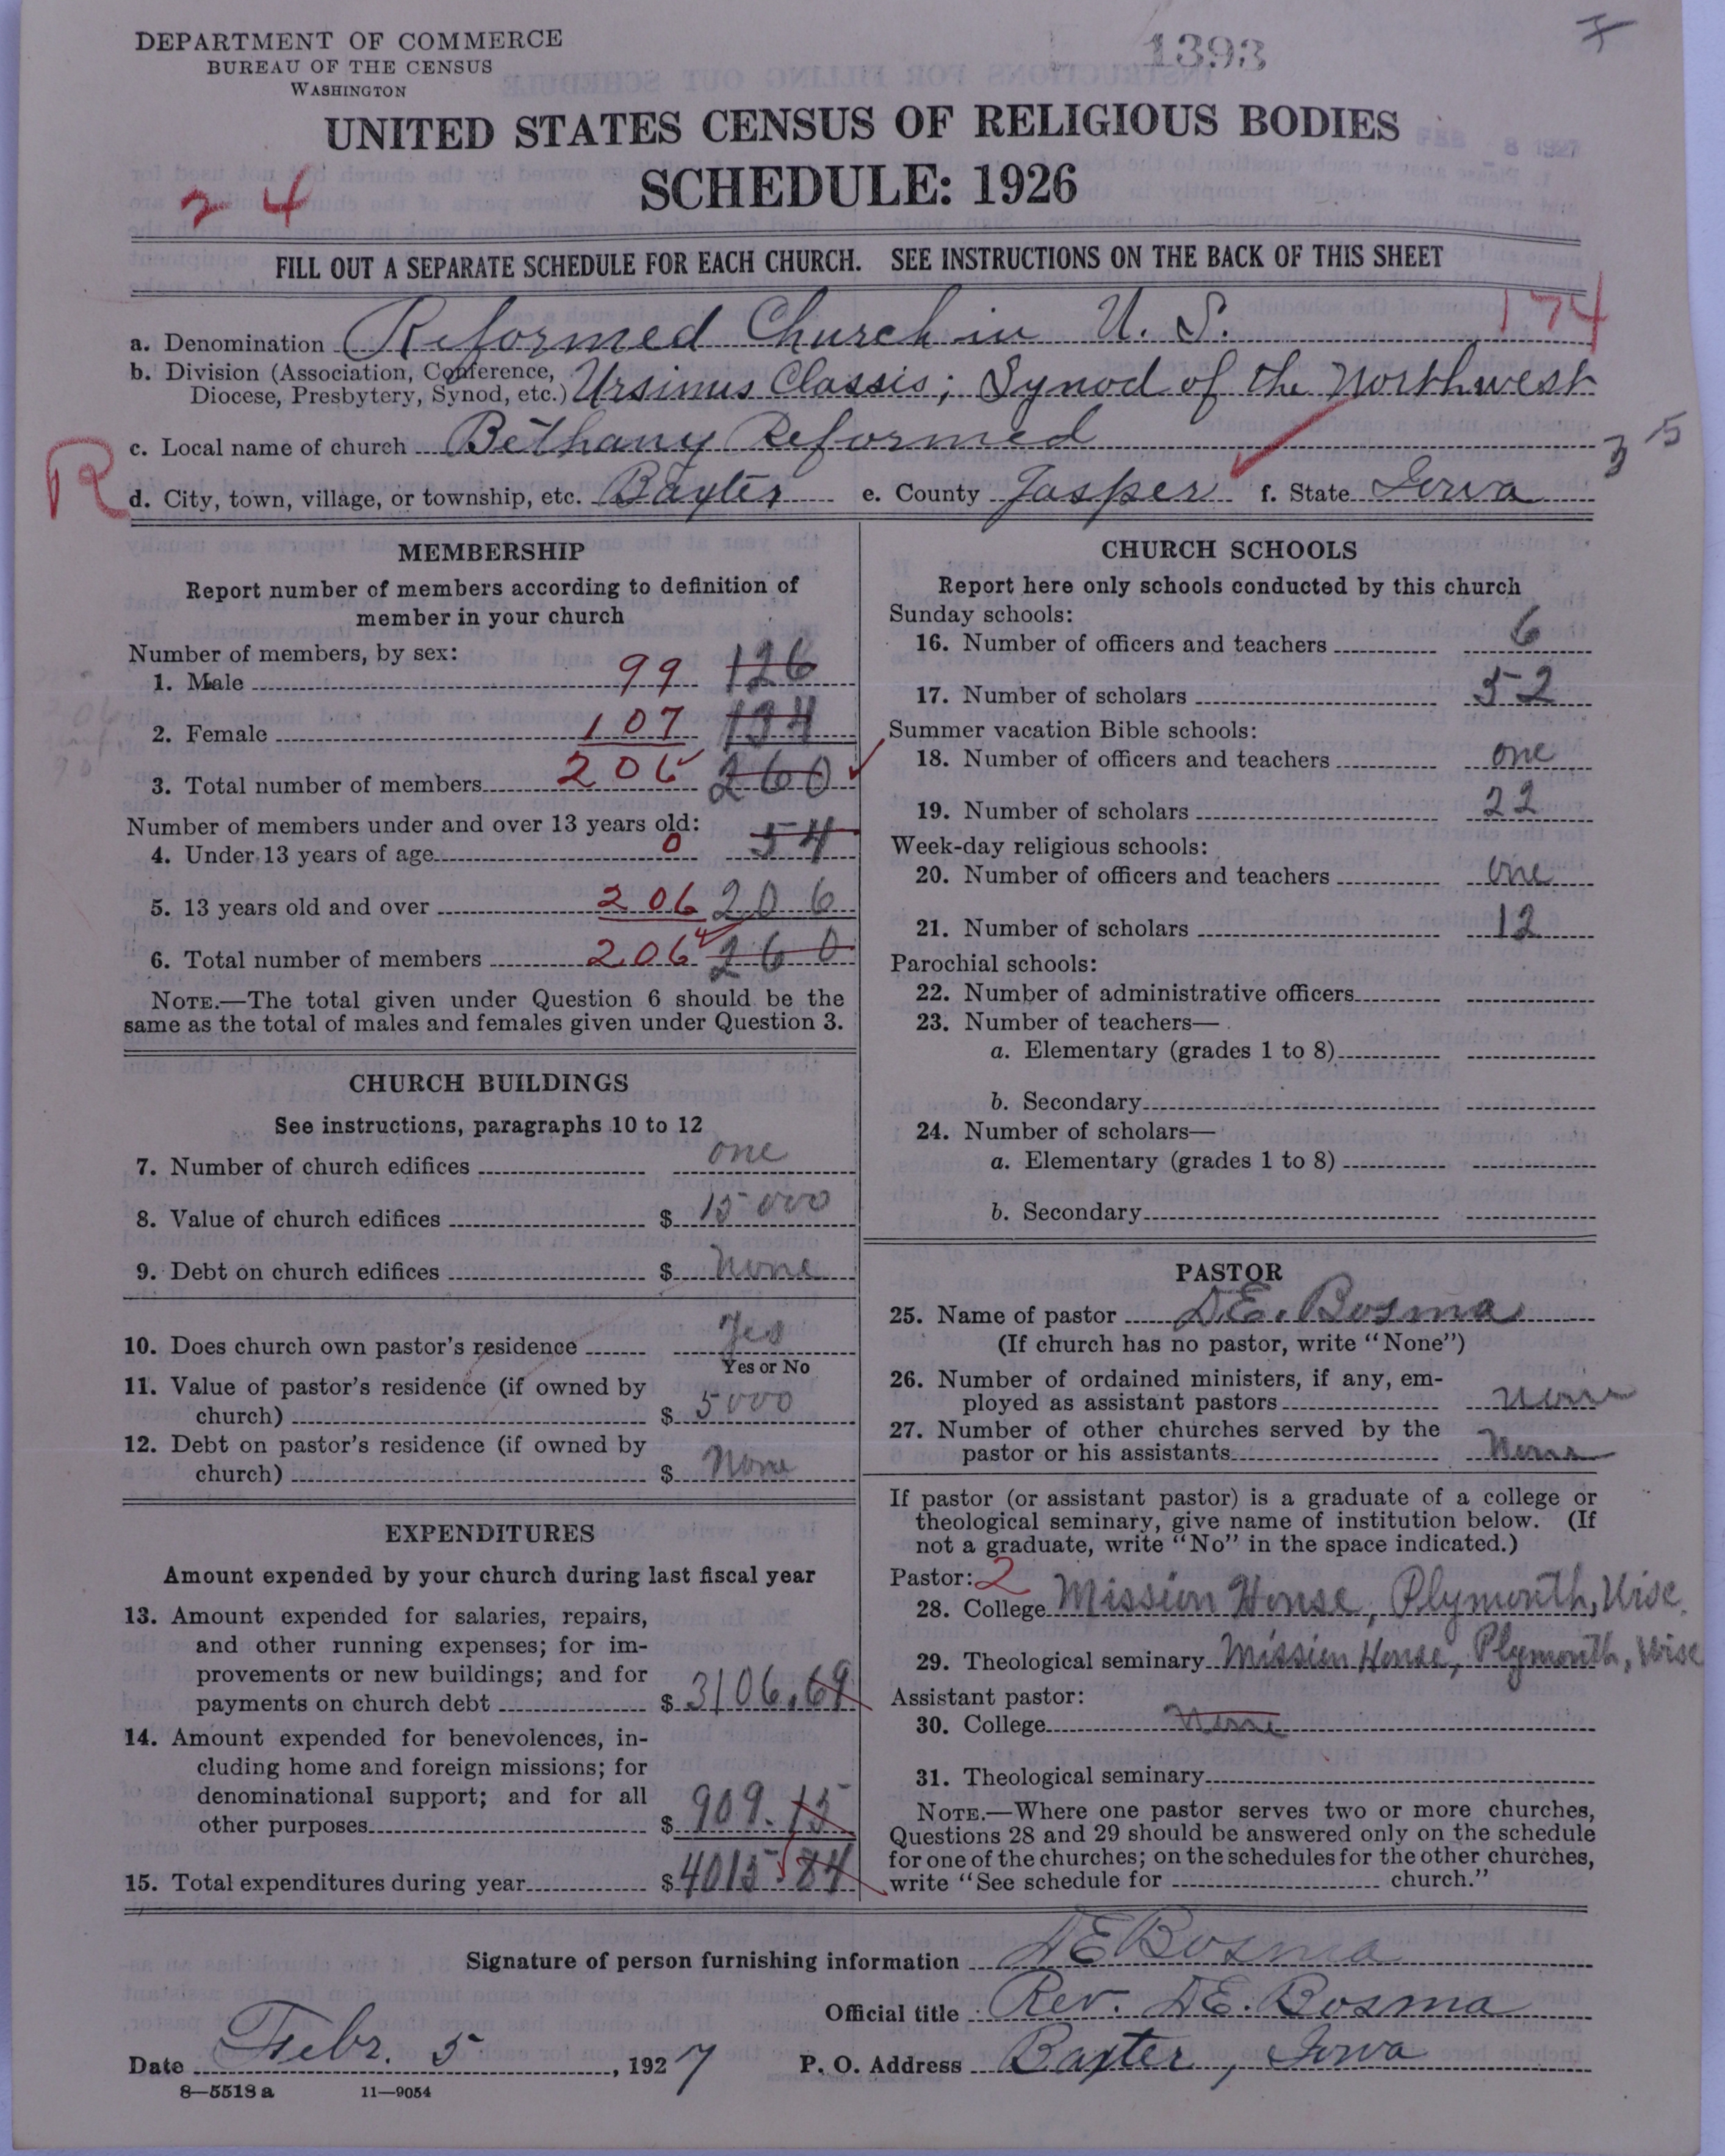 DEPARTMENT OF COMMERCE
BUREAU OF THE CENSUS
WASHINGTON
1393
UNITED STATES CENSUS OF RELIGIOUS BODIES
SCHEDULE: 1926
FEB 8 1927
2 4
FILL OUT A SEPARATE SCHEDULE FOR EACH CHURCH. SEE INSTRUCTIONS ON THE BACK OF THIS SHEET
174
a. Denomination Reformed Church in U. S.
b. Division (Association, Conference,
Diocese, Presbytery, Synod, etc.) Ursinus Classis; Synod of the Northwest
c. Local name of church Bethany Reformed
35
R
d. City, town, village, or township, etc. Baxter e. County Jasper f. State Iowa
MEMBERSHIP
Report number of members according to definition of
member in your church
Number of members, by sex:
1. Male 99 126
2. Female 107 134
3. Total number of members 206 260
Number of members under and over 13 years old:
4. Under 13 years of age 0 54
5. 13 years old and over 206 206
6. Total number of members 206 260
NOTE.—The total given under Question 6 should be the
same as the total of males and females given under Question 3.
CHURCH BUILDINGS
See instructions, paragraphs 10 to 12
7. Number of church edifices one
8. Value of church edifices $ 15000
9. Debt on church edifices $ None
10. Does church own pastor's residence Yes
Yes or No
11. Value of pastor's residence (if owned by
church) $ 5000
12. Debt on pastor's residence (if owned by
church) $ None
EXPENDITURES
Amount expended by your church during last fiscal year
13. Amount expended for salaries, repairs,
and other running expenses; for im-
provements or new buildings; and for
payments on church debt $ 3106.69
14. Amount expended for benevolences, in-
cluding home and foreign missions; for
denominational support; and for all
other purposes $ 909.15
15. Total expenditures during year $ 4015 84
CHURCH SCHOOLS
Report here only schools conducted by this church
Sunday schools:
16. Number of officers and teachers 6
17. Number of scholars 52
Summer vacation Bible schools:
18. Number of officers and teachers one
19. Number of scholars 22
Week-day religious schools:
20. Number of officers and teachers one
21. Number of scholars 12
Parochial schools:
22. Number of administrative officers
23. Number of teachers—
a. Elementary (grades 1 to 8)
b. Secondary
24. Number of scholars—
a. Elementary (grades 1 to 8)
b. Secondary
PASTOR
25. Name of pastor D.E. Bosma
(If church has no pastor, write "None")
26. Number of ordained ministers, if any, em-
ployed as assistant pastors None
27. Number of other churches served by the
pastor or his assistants None
If pastor (or assistant pastor) is a graduate of a college or
theological seminary, give name of institution below. (If
not a graduate, write "No" in the space indicated.)
Pastor: 2
28. College Mission House, Plymouth, Wisc.
29. Theological seminary Mission House, Plymouth, Wisc
Assistant pastor:
30. College None
31. Theological seminary
NOTE.—Where one pastor serves two or more churches,
Questions 28 and 29 should be answered only on the schedule
for one of the churches; on the schedules for the other churches,
write "See schedule for church."
Signature of person furnishing information D E Bosma
Official title Rev. D.E. Bosma
Date Febr. 5, 1927 P. O. Address Baxter, Iowa
8—5518 a 11—9054